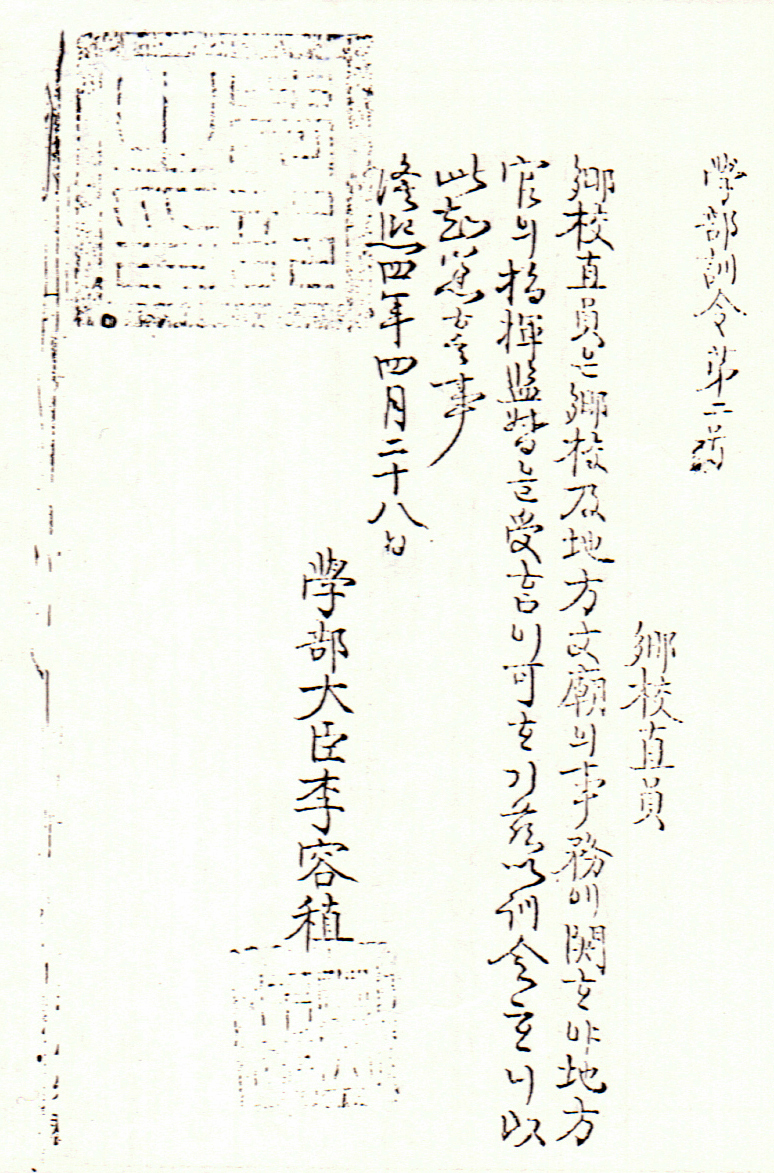 學部訓令第二號
鄕校直員
鄕校直員은鄕校及地方文廟의事務에關ᄒᆞ야地方
官의指揮監督을受홈이可ᄒᆞ기玆以訓令ᄒᆞ니以
此知悉홀事
隆熙四年四月二十八日
學部大臣李容稙